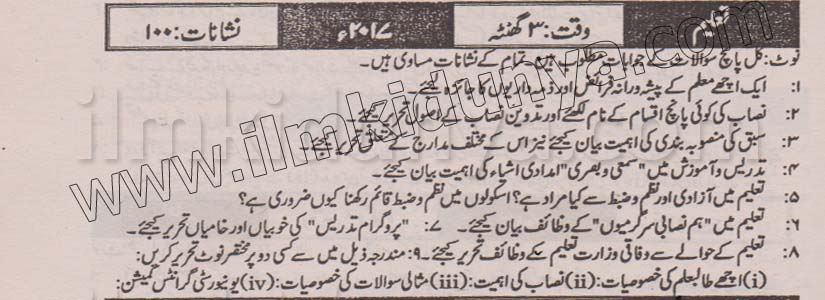 تعلیم ۲۰۱۷ء وقت: ۳ گھنٹہ نشانات: ۱۰۰
نوٹ: کل پانچ سوالات کے جوابات مطلوب ہیں۔ تمام کے نشانات مساوی ہیں۔
۱: ایک اچھے معلم کے پیشہ ورانہ فرائض اور ذمہ داریوں کا جائزہ لیجئے۔
۲: نصاب کی کوئی پانچ اقسام کے نام لکھئے اور تدوین نصاب کے اصول تحریر کیجئے۔
۳: سبق کی منصوبہ بندی کی اہمیت بیان کیجئے نیز اس کے مختلف مدارج کے متعلق تحریر کیجئے۔
۴: تدریس و آموزش میں "سمعی و بصری" امدادی اشیاء کی اہمیت بیان کیجئے۔
۵: تعلیم میں آزادی اور نظم و ضبط سے کیا مراد ہے؟ اسکولوں میں نظم و ضبط قائم رکھنا کیوں ضروری ہے؟
۶: تعلیم میں "ہم نصابی سرگرمیوں" کے وظائف بیان کیجئے۔ ۷: "پروگرام تدریس" کی خوبیاں اور خامیاں تحریر کیجئے۔
۸: تعلیم کے حوالے سے وفاقی وزارت تعلیم کے وظائف تحریر کیجئے۔ ۹: مندرجہ ذیل میں سے کسی دو پر مختصر نوٹ تحریر کریں:
(i) اچھے طالبعلم کی خصوصیات: (ii) نصاب کی اہمیت: (iii) مثالی سوالات کی خصوصیات: (iv) یونیورسٹی گرانٹس کمیشن:
www.ilmkidunya.com
ilmkidunya.com